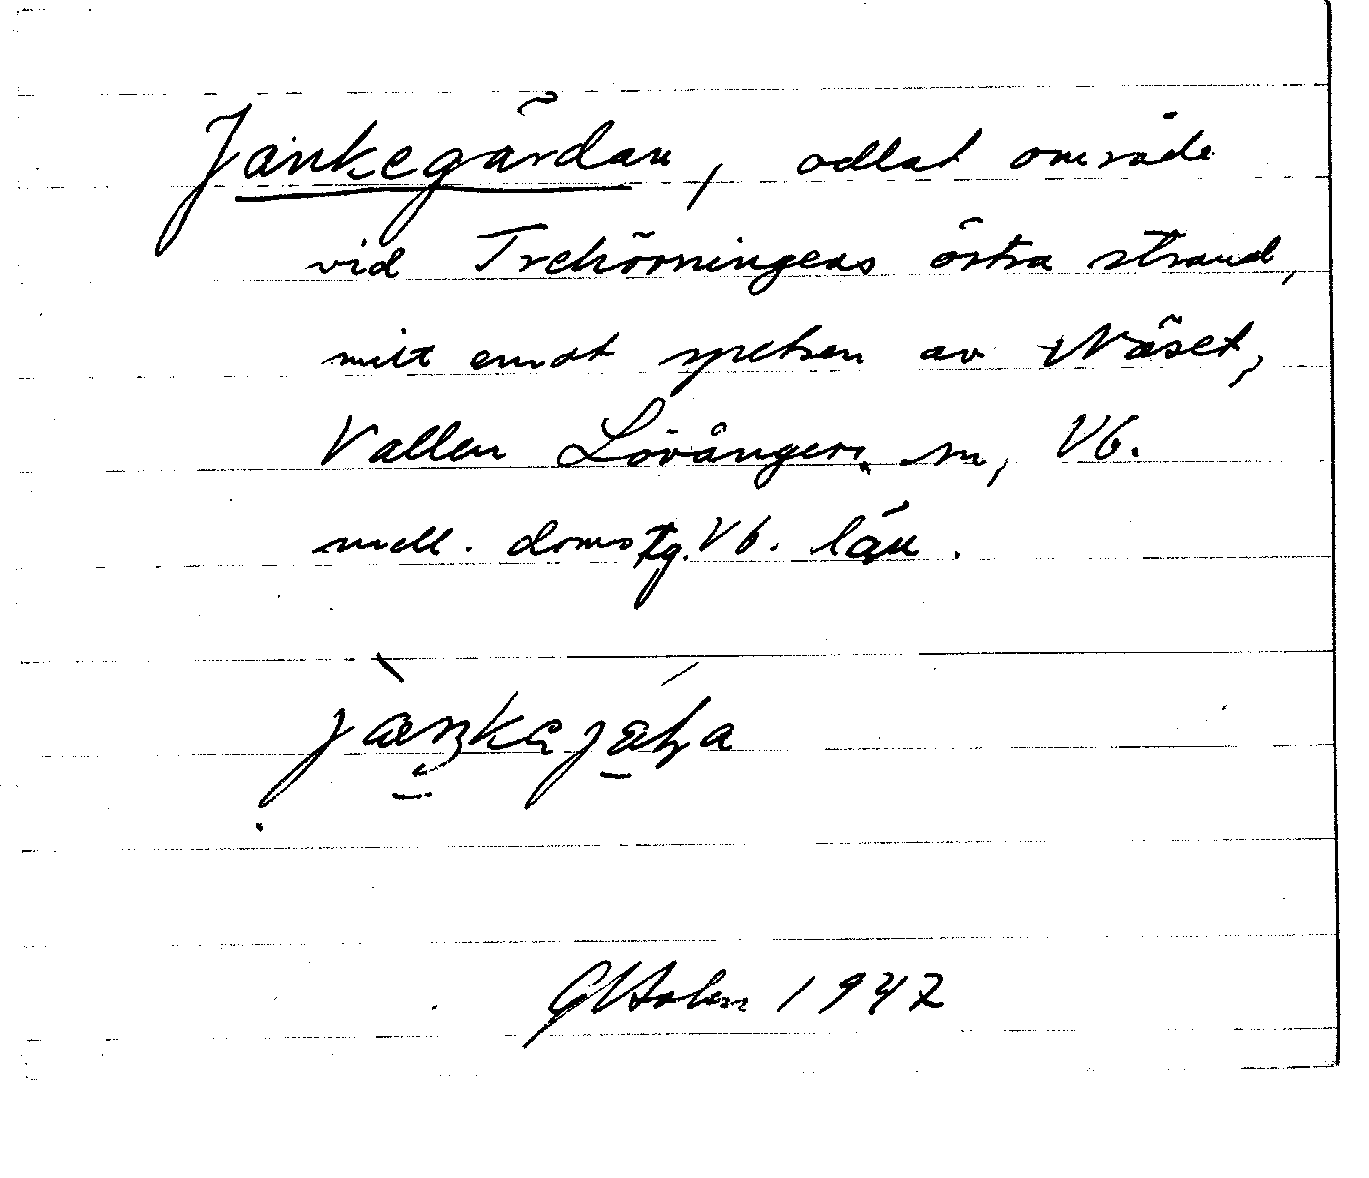 Jankegärdan, odlat område
vid Trehörningens östra strand,
mitt emot spetsen av Näset,
Vallen Lövångers sn, Vb.
mell. domstg. Vb. län.
1942